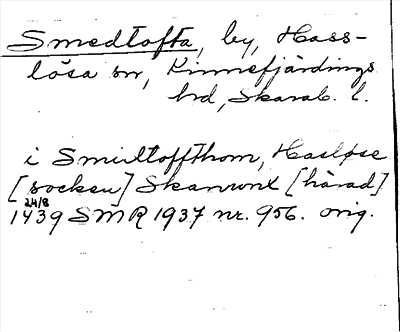 Smedtofta, by, Hass-
lösa sn, Kinnefjärdings
hd, Skarab. l.
i Smiltoffthom, Hasløse
[socken] Skanwnl [härad]
24/8
1439 SMR 1937 nr. 956. orig.